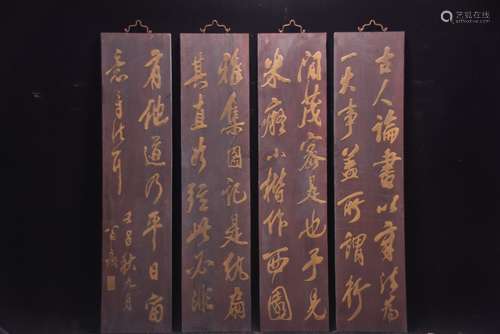 古人論書以章法為
一大事蓋所謂行
間茂密是也予見
米癡小楷作西園
雅集圖記是紈扇
其直如弦此必非
有他道乃平日留
意章法耳
秋九月
艺狐在线